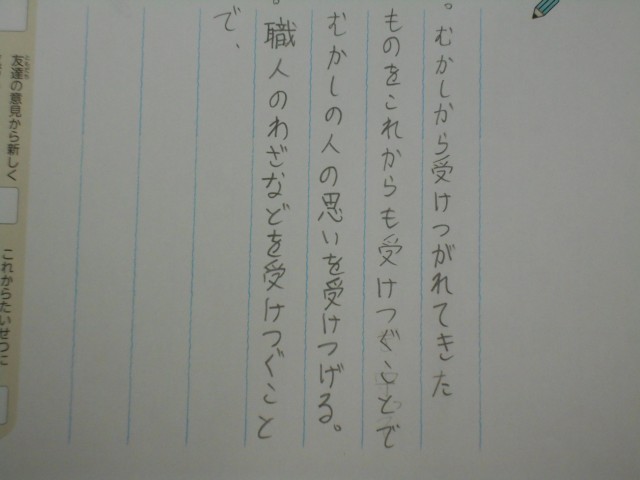 ・むかしから受けつがれてきた
ものをこれからも受けつぐことで
むかしの人の思いを受けつげる。
・職人のわざなどを受けつぐこと
で、
友達の意見から新しく
これからたいせつに